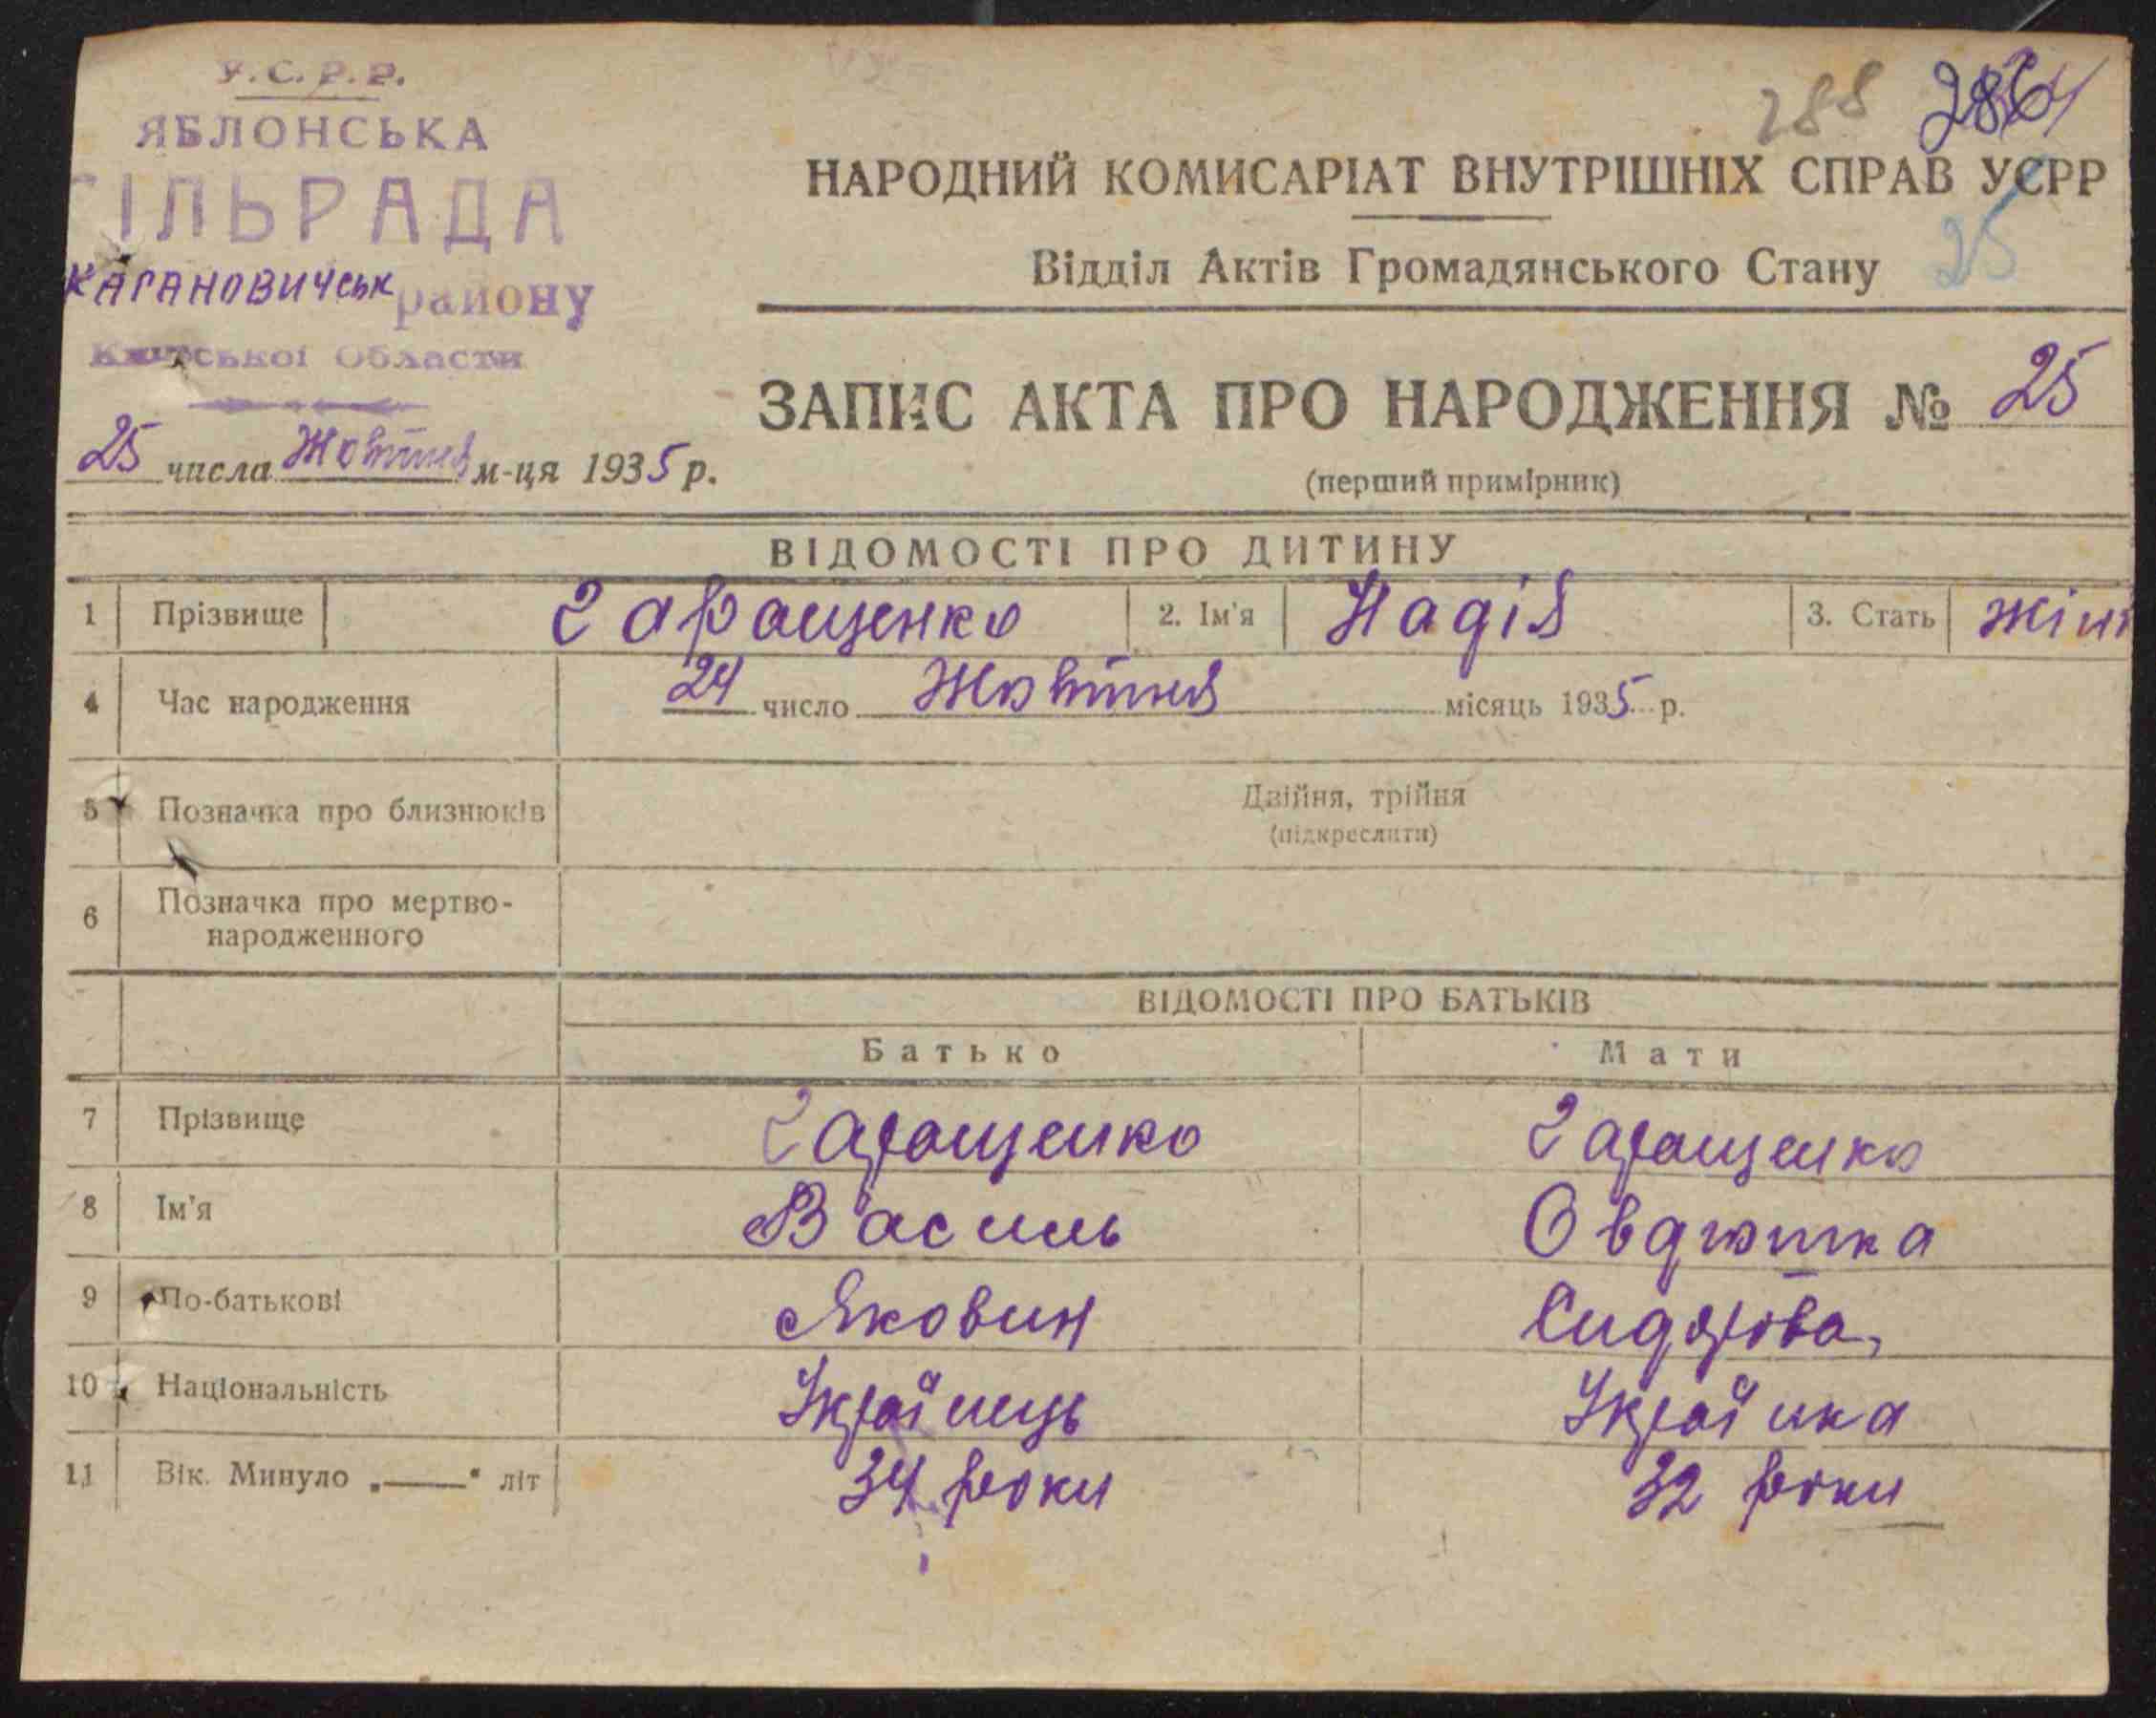 У.С.Р.Р.
ЯБЛОНСЬКА
СІЛЬРАДА
КАГАНОВИЧСЬК району
Київської Области
25 числа Жовтня м-ця 1935 р.
288
НАРОДНИЙ КОМИСАРІАТ ВНУТРІШНІХ СПРАВ УСРР
Відділ Актів Громадянського Стану 25
ЗАПИС АКТА ПРО НАРОДЖЕННЯ № 25
(перший примірник)
ВІДОМОСТІ ПРО ДИТИНУ
1 Прізвище Гаращенко 2. Ім'я Надія 3. Стать жін
4 Час народження 24 число Жовтня місяць 1935 р.
5 Позначка про близнюків Двійня, трійня
(підкреслити)
6 Позначка про мертво-
народженного
ВІДОМОСТІ ПРО БАТЬКІВ
Батько Мати
7 Прізвище Гаращенко Гаращенко
8 Ім'я Василь Овдюшка
9 По-батькові Яковин Сидорова
10 Національність Українець Українка
11 Вік. Минуло „——“ літ 34 роки 32 роки